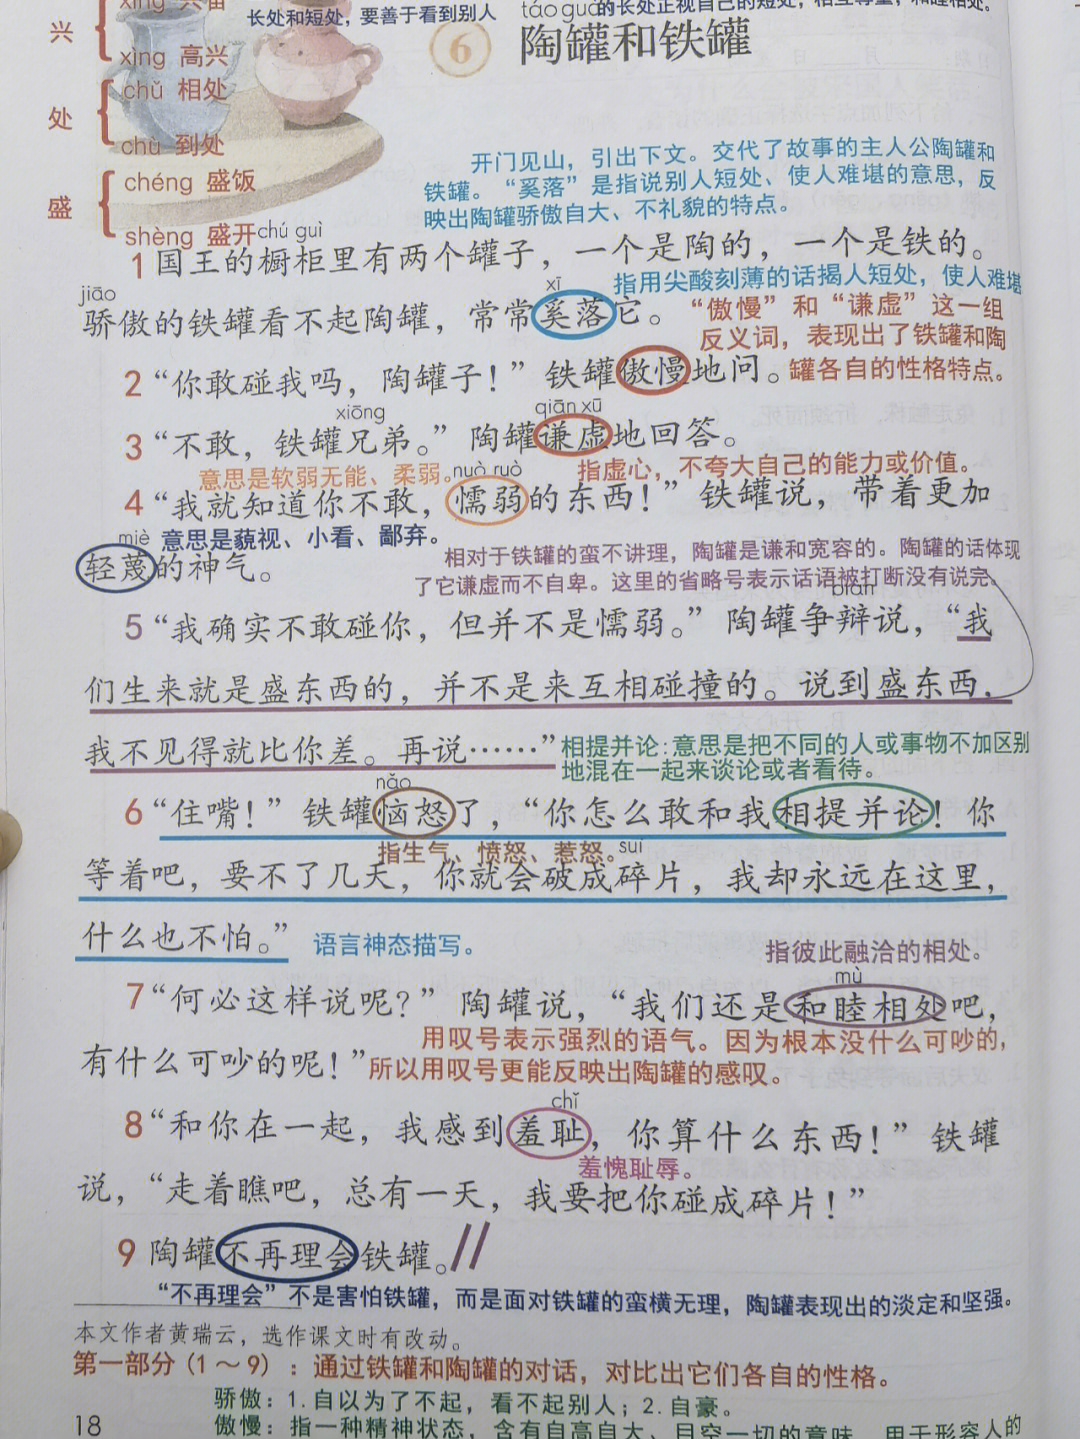 兴
xìng 高兴
处
chǔ 相处
chù 到处
盛
chéng 盛饭
shèng 盛开
长处和短处，要善于看到别人
的长处正视自己的短处，相互尊重，和睦相处。
táo guàn
6 陶罐和铁罐
开门见山，引出下文。交代了故事的主人公陶罐和
铁罐。“奚落”是指说别人短处、使人难堪的意思，反
映出陶罐骄傲自大、不礼貌的特点。
chú guì
1 国王的橱柜里有两个罐子，一个是陶的，一个是铁的。
指用尖酸刻薄的话揭人短处，使人难堪
jiāo xī
骄傲的铁罐看不起陶罐，常常奚落它。
“傲慢”和“谦虚”这一组
反义词，表现出了铁罐和陶
罐各自的性格特点。
2 “你敢碰我吗，陶罐子！”铁罐傲慢地问。
xiōng qiān xū
3 “不敢，铁罐兄弟。”陶罐谦虚地回答。
意思是软弱无能、柔弱。
指虚心，不夸大自己的能力或价值。
nuò ruò
4 “我就知道你不敢，懦弱的东西！”铁罐说，带着更加
miè 意思是藐视、小看、鄙弃。
轻蔑的神气。
相对于铁罐的蛮不讲理，陶罐是谦和宽容的。陶罐的话体现
了它谦虚而不自卑。这里的省略号表示话语被打断没有说完。
biàn
5 “我确实不敢碰你，但并不是懦弱。”陶罐争辩说，“我
们生来就是盛东西的，并不是来互相碰撞的。说到盛东西，
我不见得就比你差。再说……”
相提并论：意思是把不同的人或事物不加区别
地混在一起来谈论或者看待。
nǎo
6 “住嘴！”铁罐恼怒了，“你怎么敢和我相提并论！你
指生气、愤怒、惹怒。 suì
等着吧，要不了几天，你就会破成碎片，我却永远在这里，
什么也不怕。”
语言神态描写。
指彼此融洽的相处。
mù
7 “何必这样说呢？”陶罐说，“我们还是和睦相处吧，
用叹号表示强烈的语气。因为根本没什么可吵的，
有什么可吵的呢！”
所以用叹号更能反映出陶罐的感叹。
chǐ
8 “和你在一起，我感到羞耻，你算什么东西！”铁罐
羞愧耻辱。
说，“走着瞧吧，总有一天，我要把你碰成碎片！”
9 陶罐不再理会铁罐。
“不再理会”不是害怕铁罐，而是面对铁罐的蛮横无理，陶罐表现出的淡定和坚强。
本文作者黄瑞云，选作课文时有改动。
第一部分（1～9）：通过铁罐和陶罐的对话，对比出它们各自的性格。
骄傲：1.自以为了不起，看不起别人；2.自豪。
18
傲慢：指一种精神状态，含有自高自大、目空一切的意味，用于形容人的